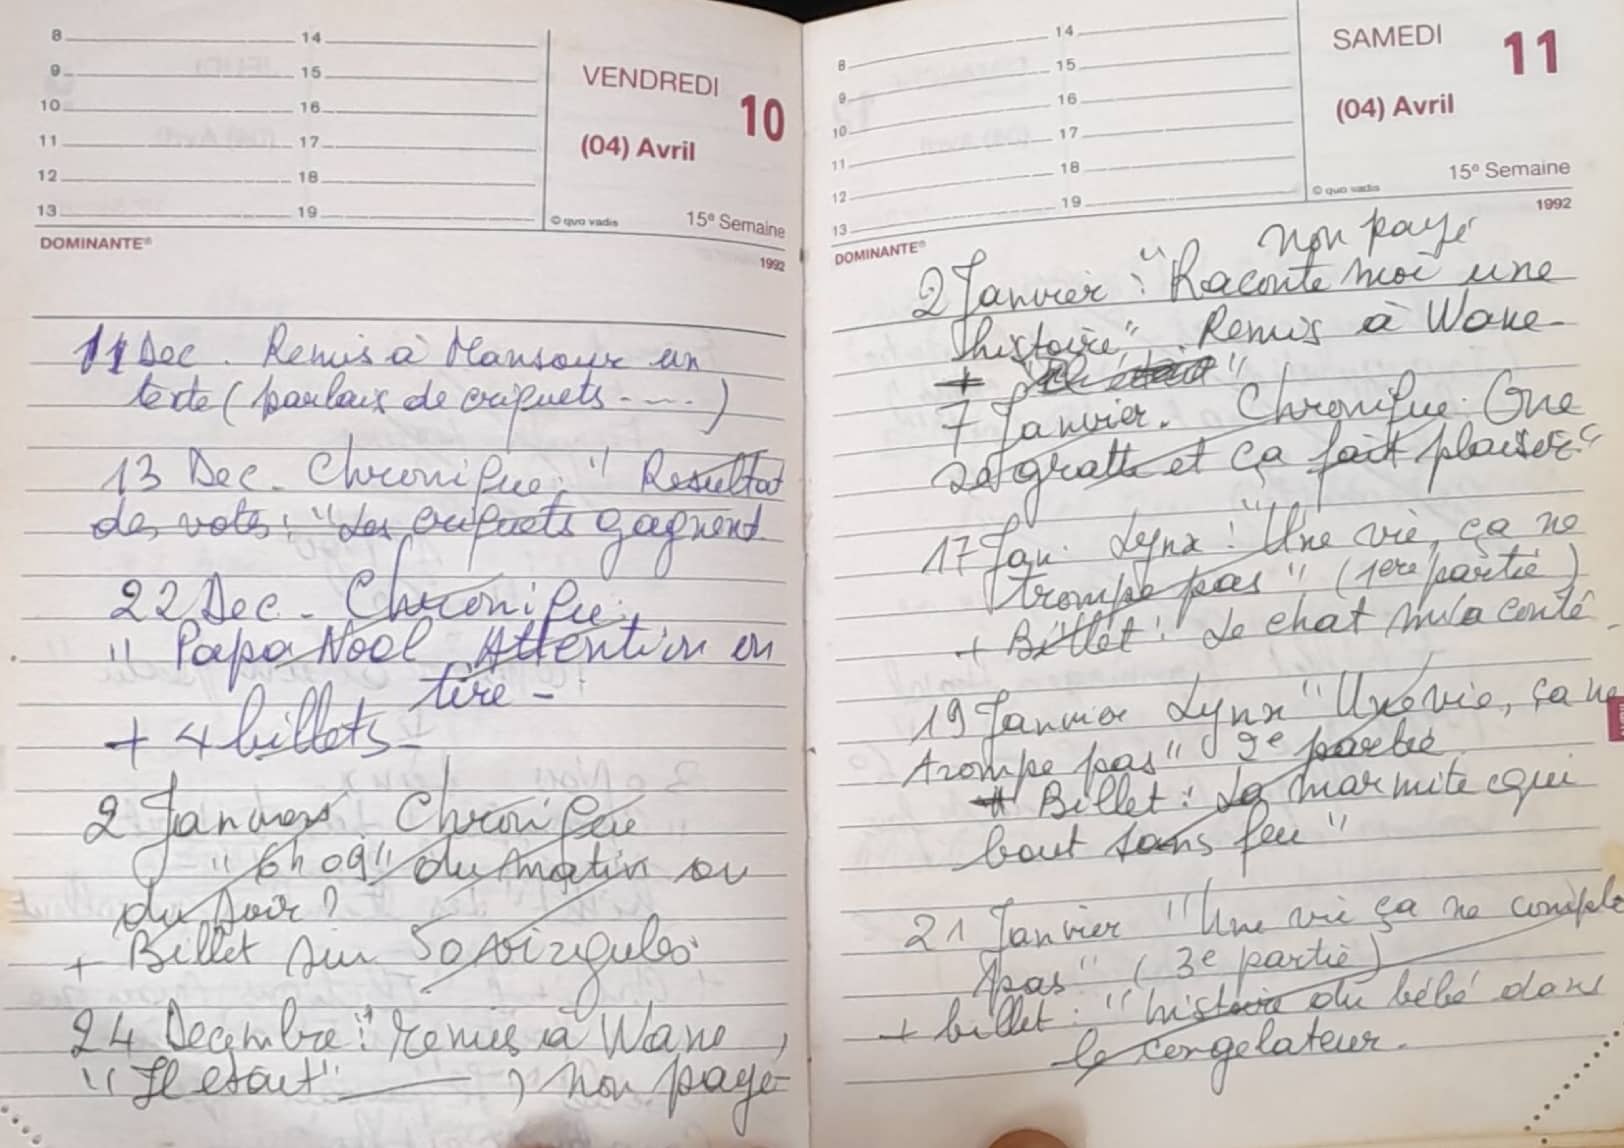 8 14
9 15
10 16
11 17
12 18
13 19
VENDREDI 10
(04) Avril
© quo vadis 15e Semaine
DOMINANTE® 1992
11 Dec. Remis à Mansour un
texte (parlais de criquets - ....)
13 Dec - Chronique: " Resultat
des vots: "Les criquets gagnent
22 Dec - Chronique:
" Papa Noël Attention on
tire -
+ 4 billets -
2 Janvier Chronique
" 6h 09" du matin ou
du soir ?
+ Billet sur So virgules
24 Decembre: " remis à Wane,
"Il etait" ——— , non payé
8 14
9 15
10 16
11 17
12 18
13 19
SAMEDI 11
(04) Avril
15e Semaine
© quo vadis
1992
DOMINANTE®
non payé
2 Janvier : "Raconte moi une
histoire". Remis à Wane -
+ "
7 Janvier. Chronique: One
se gratte et ça fait plaisir"
17 Jan. Lynx : "Une vie, ça ne
trompe pas" (1ere partie)
+ Billet : Le chat m'a conté -
19 Janvier Lynx "Une vie, ça ne
trompe pas" 2e partie
+ Billet : La marmite qui
bout sans feu"
21 Janvier "Une vie ça ne compte
pas" (3e partie)
+ billet : "histoire du bébé dans
le congelateur.